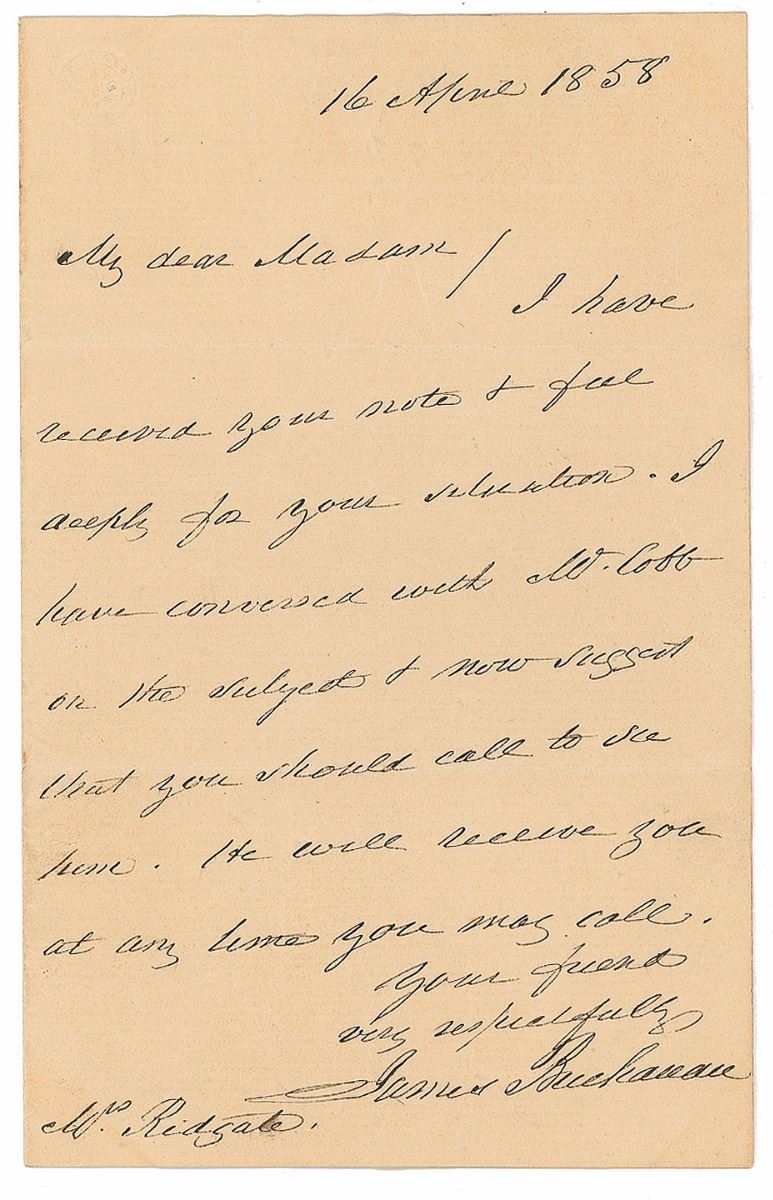 16 April 1858
My dear Madam /
I have
received your note & feel
deeply for your situation. I
have conversed with Mr. Cobb
on the subject & now suggest
that you should call to see
him. He will receive you
at any time you may call.
Your friend
very respectfully
James Buchanan
Mrs. Ridgate.